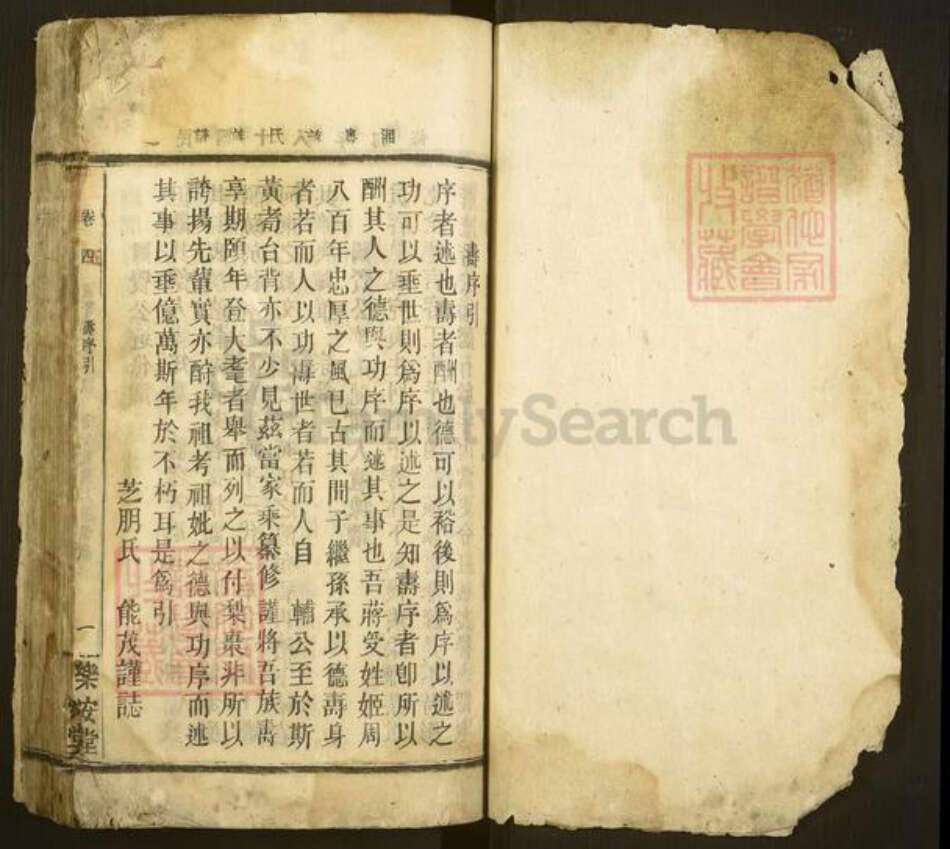 壽序引
序者述也壽者酬也德可以裕後則爲序以述之
功可以垂世則爲序以述之是知壽序者卽所以
酬其人之德與功序而述其事也吾蔣受姓姬周
八百年忠厚之風已古其間子繼孫承以德壽身
者若而人以功壽世者若而人自 輔公至於斯
黃耇台背亦不少見茲當家乘纂修謹將吾族壽
享期頤年登大耄者舉而列之以付梨棗非所以
誇揚先輩實亦酧我祖考祖妣之德與功序而述
其事以垂億萬斯年於不朽耳是爲引
芝朋氏 能茂謹誌
卷四
壽序引
一
樂安堂
猶他家
譜學會
收藏
FamilySearch